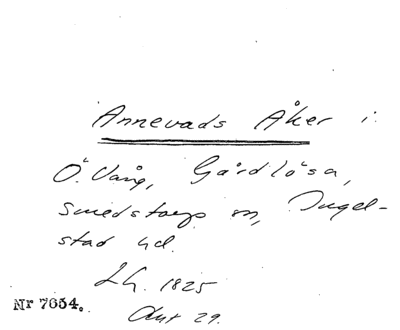 Annevads Åker i
Ö. Vång, Gårdlösa,
Smedstorps sn, Ingel-
stad hd.
Lh. 1825
Akt 29.
Nr 7654.